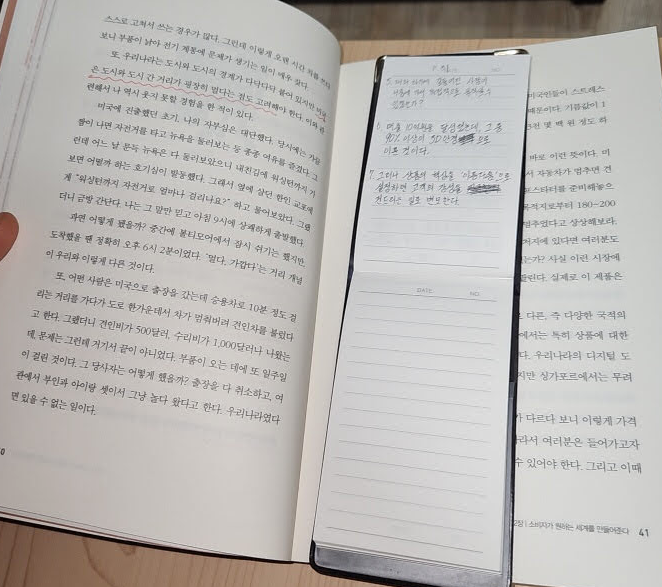 스스로 고쳐서 쓰는 경우가 많다. 그런데 이렇게 오랜 시간 차를
보니 부품이 낡아 전기 계통에 문제가 생기는 일이 매우 잦다.
또, 우리나라는 도시와 도시의 경계가 다닥다닥 붙어 있지만 미국
은 도시와 도시 간 거리가 굉장히 멀다는 점도 고려해야 한다. 이와 관
련해서 나 역시 웃지 못할 경험을 한 적이 있다.
미국에 진출했던 초기, 나의 자부심은 대단했다. 당시에는 가끔
짬이 나면 자전거를 타고 뉴욕을 둘러보는 등 종종 여유를 즐겼다. 그
런데 어느 날 문득 뉴욕은 다 둘러보았으니 내친김에 워싱턴까지 가
보면 어떨까 하는 호기심이 발동했다. 그래서 옆에 살던 한인 교포에
게 "워싱턴까지 자전거로 얼마나 걸리나요?" 하고 물어보았다. 그랬
더니 금방 간단다. 나는 그 말만 믿고 아침 9시에 상쾌하게 출발했다.
과연 어떻게 했을까? 중간에 볼티모어에서 잠시 쉬기는 했지만,
도착했을 땐 정확히 오후 6시 2분이었다. '멀다, 가깝다'는 거리 개념
이 우리와 이렇게 다른 것이다.
또, 어떤 사람은 미국으로 출장을 갔는데 승용차로 10분 정도 걸
리는 거리를 가다가 도로 한가운데서 차가 멈춰버려 견인차를 불렀다
고 한다. 그랬더니 견인비가 500달러, 수리비가 1,000달러나 나왔는
데, 문제는 그런데 거기서 끝이 아니었다. 부품이 오는 데에 또 일주일
이 걸린 것이다. 그 당사자는 어떻게 했을까? 출장을 다 취소하고, 여
관에서 부인과 아이랑 셋이서 그냥 놀다 왔다고 한다. 우리나라였다
면 있을 수 없는 일이다.
0
있었는가?
6. 매출 10억원을 달성했는데, 그 중
90% 이상이 50만명으로
이룬 것이다.
7. 그러나 상품의 핵심을 '아름다움'으로
설정하면 고객의 감성을
건드리는 일로 변모한다.
DATE NO
미국인들이 스트레스
때문이다. 기름값이 1
3천 몇 백 원 정도 하
바로 이런 뜻이다. 미
서 자동차가 멈추면 견
스타터를 준비해놓으
목적지로부터 180~200
멈추었다고 상상해보라.
처지에 있다면 여러분도
는가? 사실 이런 시장에
팔린다. 실제로 이 제품은
다른, 즉 다양한 국적의
에서는 특히 상품에 대한
다. 우리나라의 디지털 도
지만 싱가포르에서는 무려
가 다르다 보니 이렇게 가격
라서 여러분은 들어가고자
수 있어야 한다. 그리고 이때
2장 | 소비자가 원하는 세계를 만들어준다 41